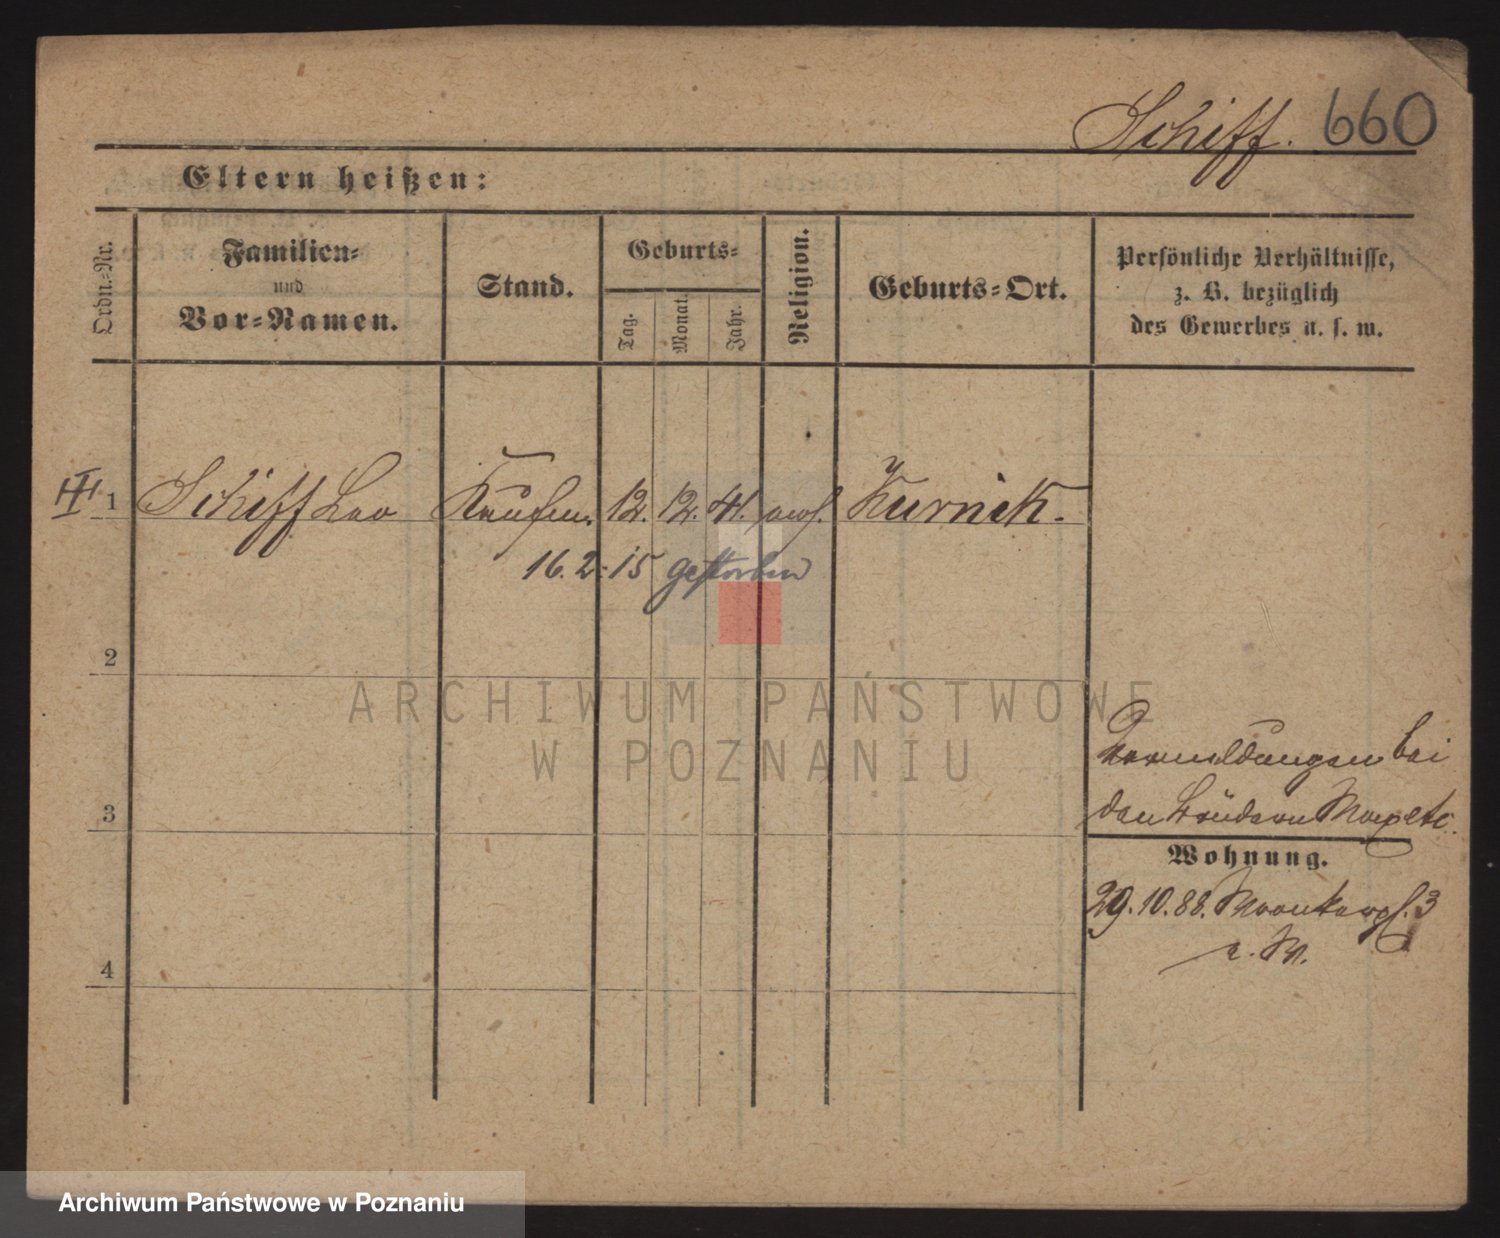 Schiff. 660
Eltern heißen:
Ordn.-Nr.
Familien-
und
Vor-Namen.
Stand.
Geburts-
Tag.
Monat.
Jahr.
Religion.
Geburts-Ort.
Persönliche Verhältnisse,
z. B. bezüglich
des Gewerbes u. s. w.
1 Schiff Leo Kaufm. 12. 12. 41. mos. Kurnik.
16. 2. 15 gestorben
2
ARCHIWUM PAŃSTWOWE
W POZNANIU
bei
3 den Brüdern
Wohnung.
29. 10. 88. 3
4
Archiwum Państwowe w Poznaniu